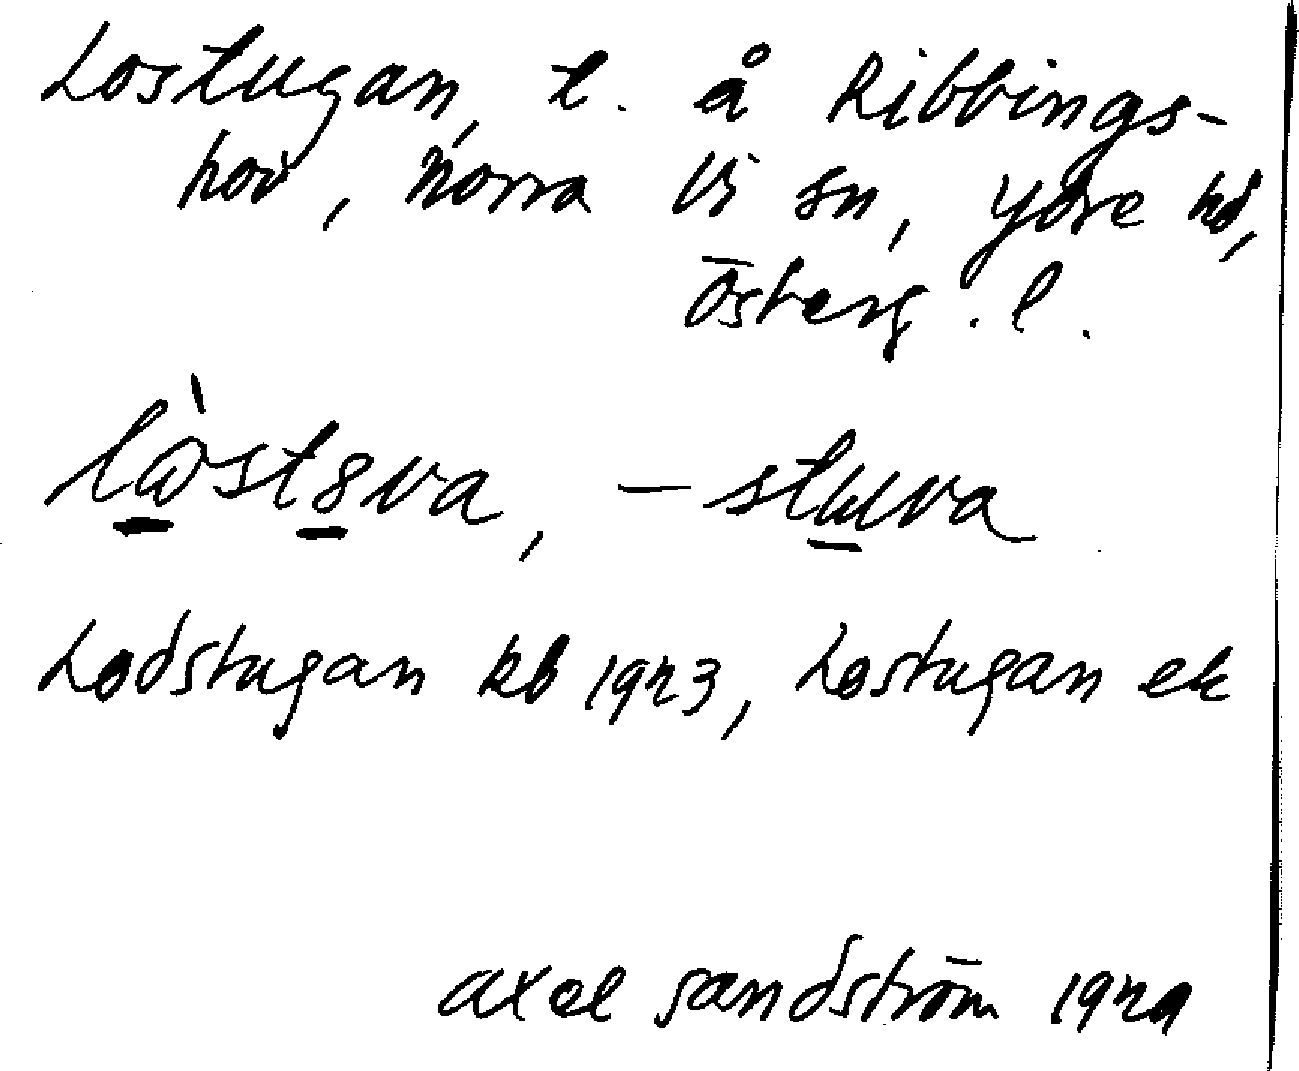 Lostugan, t. å Ribbings-
hov, Norra Vi sn, Ydre hd,
Österg. l.
lòstȣva, -stuva
Lodstugan kb 1923, Lostugan ek
Axel Sandström 1929